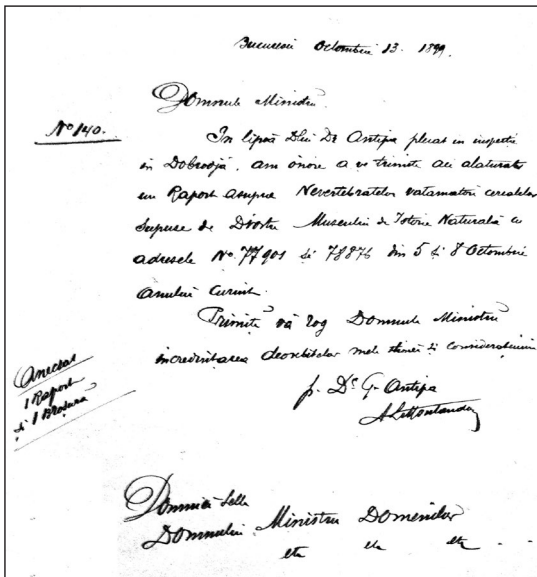 Bucuresci Octombrie 13. 1899.
Domnule Ministru
No 140.
In lipsa Dlui Dr Antipa plecat in inspectie
in Dobrogia, am onore a ve trimite aci alaturat
un Raport asupra Nevertebratelor vatamatori cerealelor
supuse de Dvostre Museului de Istorie Naturală cu
adresele No. 77901 si 78876 din 5 si 8 Octombrie
anului curent.
Primiti vă rog Domnule Ministru
incredintarea deosebitelor mele stime si consideratiuni
p. Dr. Gr. Antipa
Anecsat
1 Raport
si 1 Brosură
Domniei Selle
Domnului Ministru Domenilor
etc etc etc